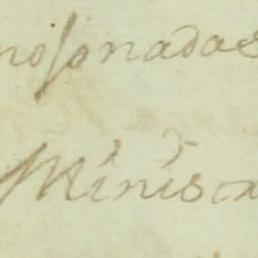 nosonadas
Minis